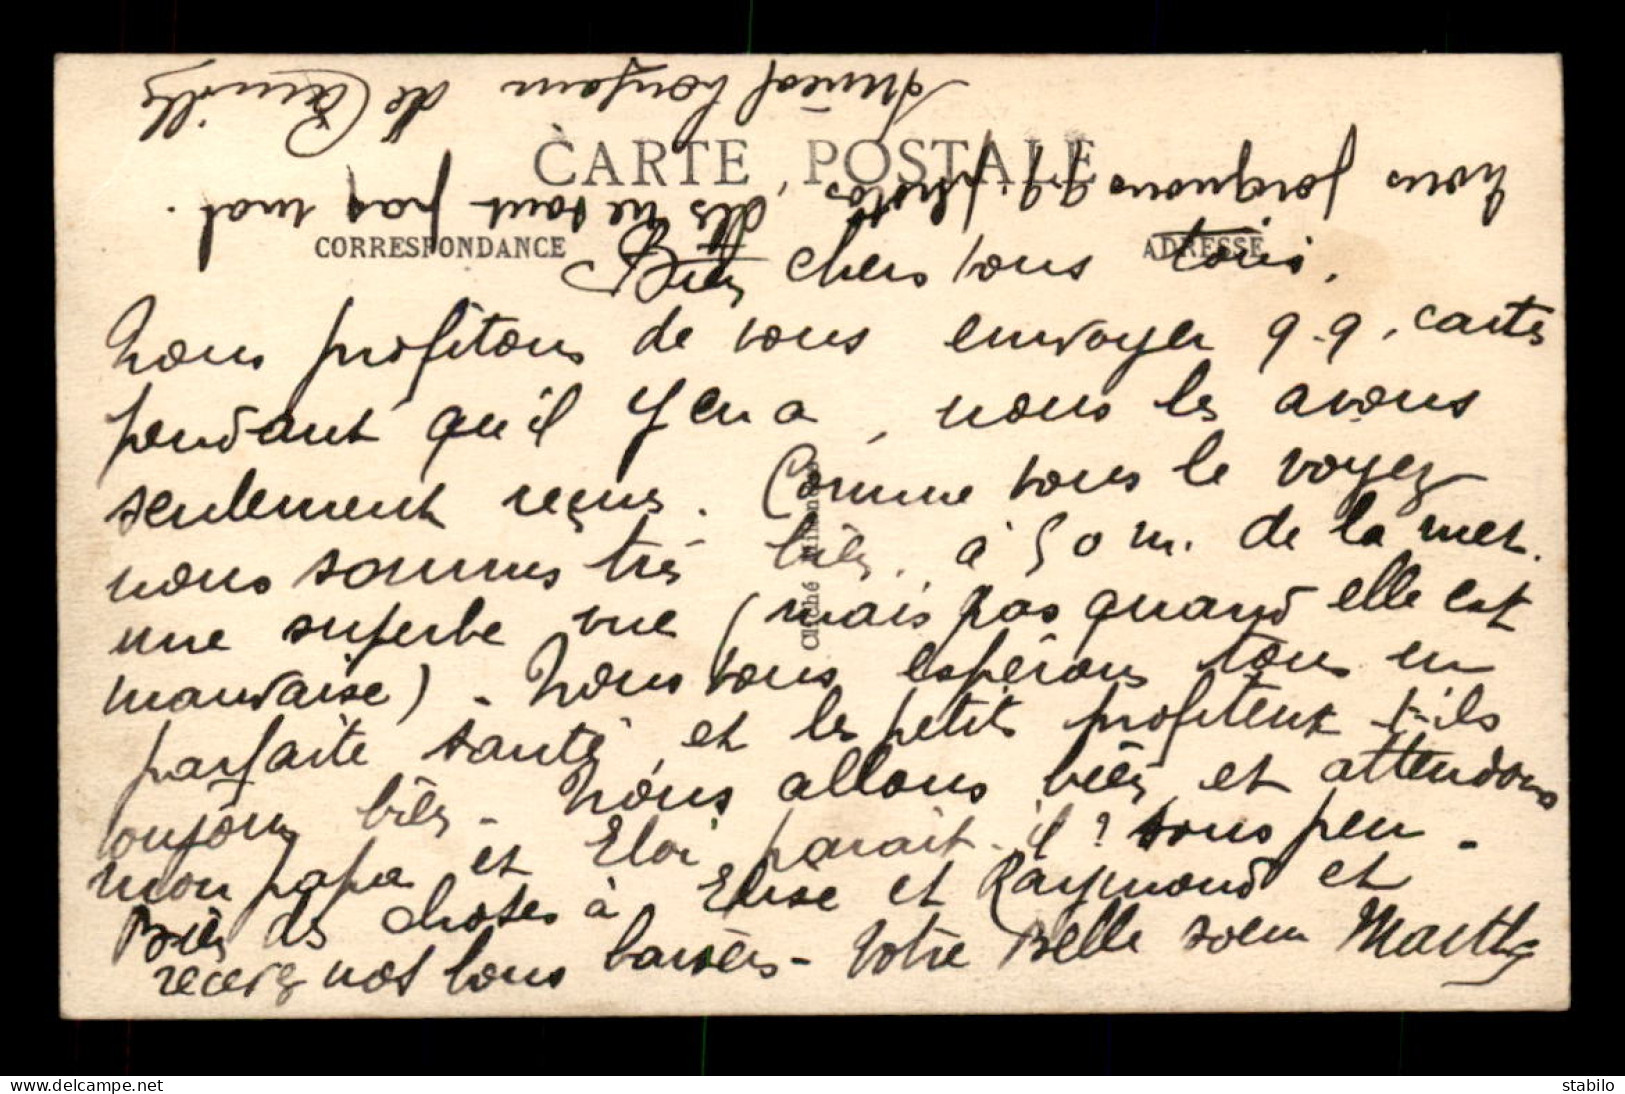 CARTE POSTALE
CORRESPONDANCE
ADRESSE
Bien chers vous trois,
Nous profitons de vous envoyer q.q. cartes
pendant qu'il y en a, nous les avons
seulement reçus. Comme vous le voyez
nous sommes très bien, à 50 m. de la mer.
une superbe vue (mais pas quand elle est
mauvaise). Nous vous espérons tous en
parfaite santé, et les petits profitent t-ils
toujours bien - Nous allons bien et attendons
mon papa et Eloi, parait-il? sous peu -
Bien des choses à Elise et Raymond et
recevez nos bons baisers - Votre Belle soeur Marthe
Nous joignons q.q. photos, elles ne sont pas mal.
Amical bonjour de Camille
Cliché